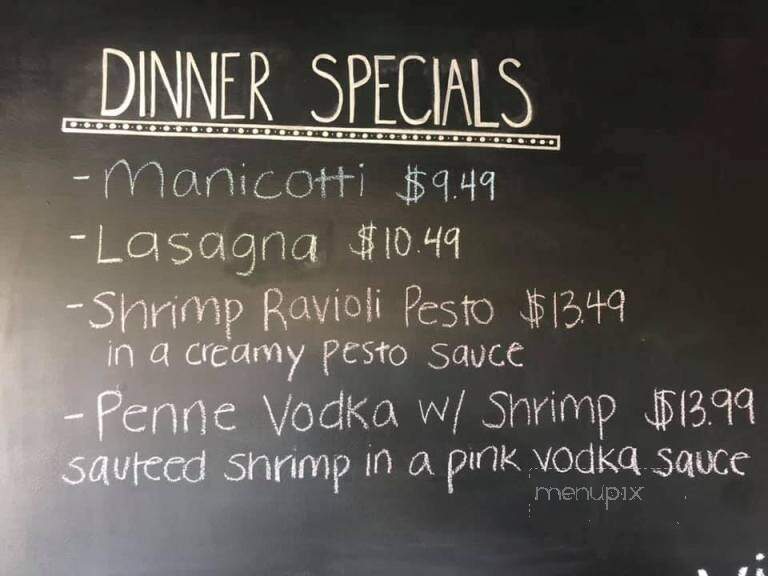 DINNER SPECIALS
- Manicotti $9.49
- Lasagna $10.49
- Shrimp Ravioli Pesto $13.49
in a creamy pesto sauce
- Penne Vodka w/ Shrimp $13.99
sauteed shrimp in a pink vodka sauce
menupix